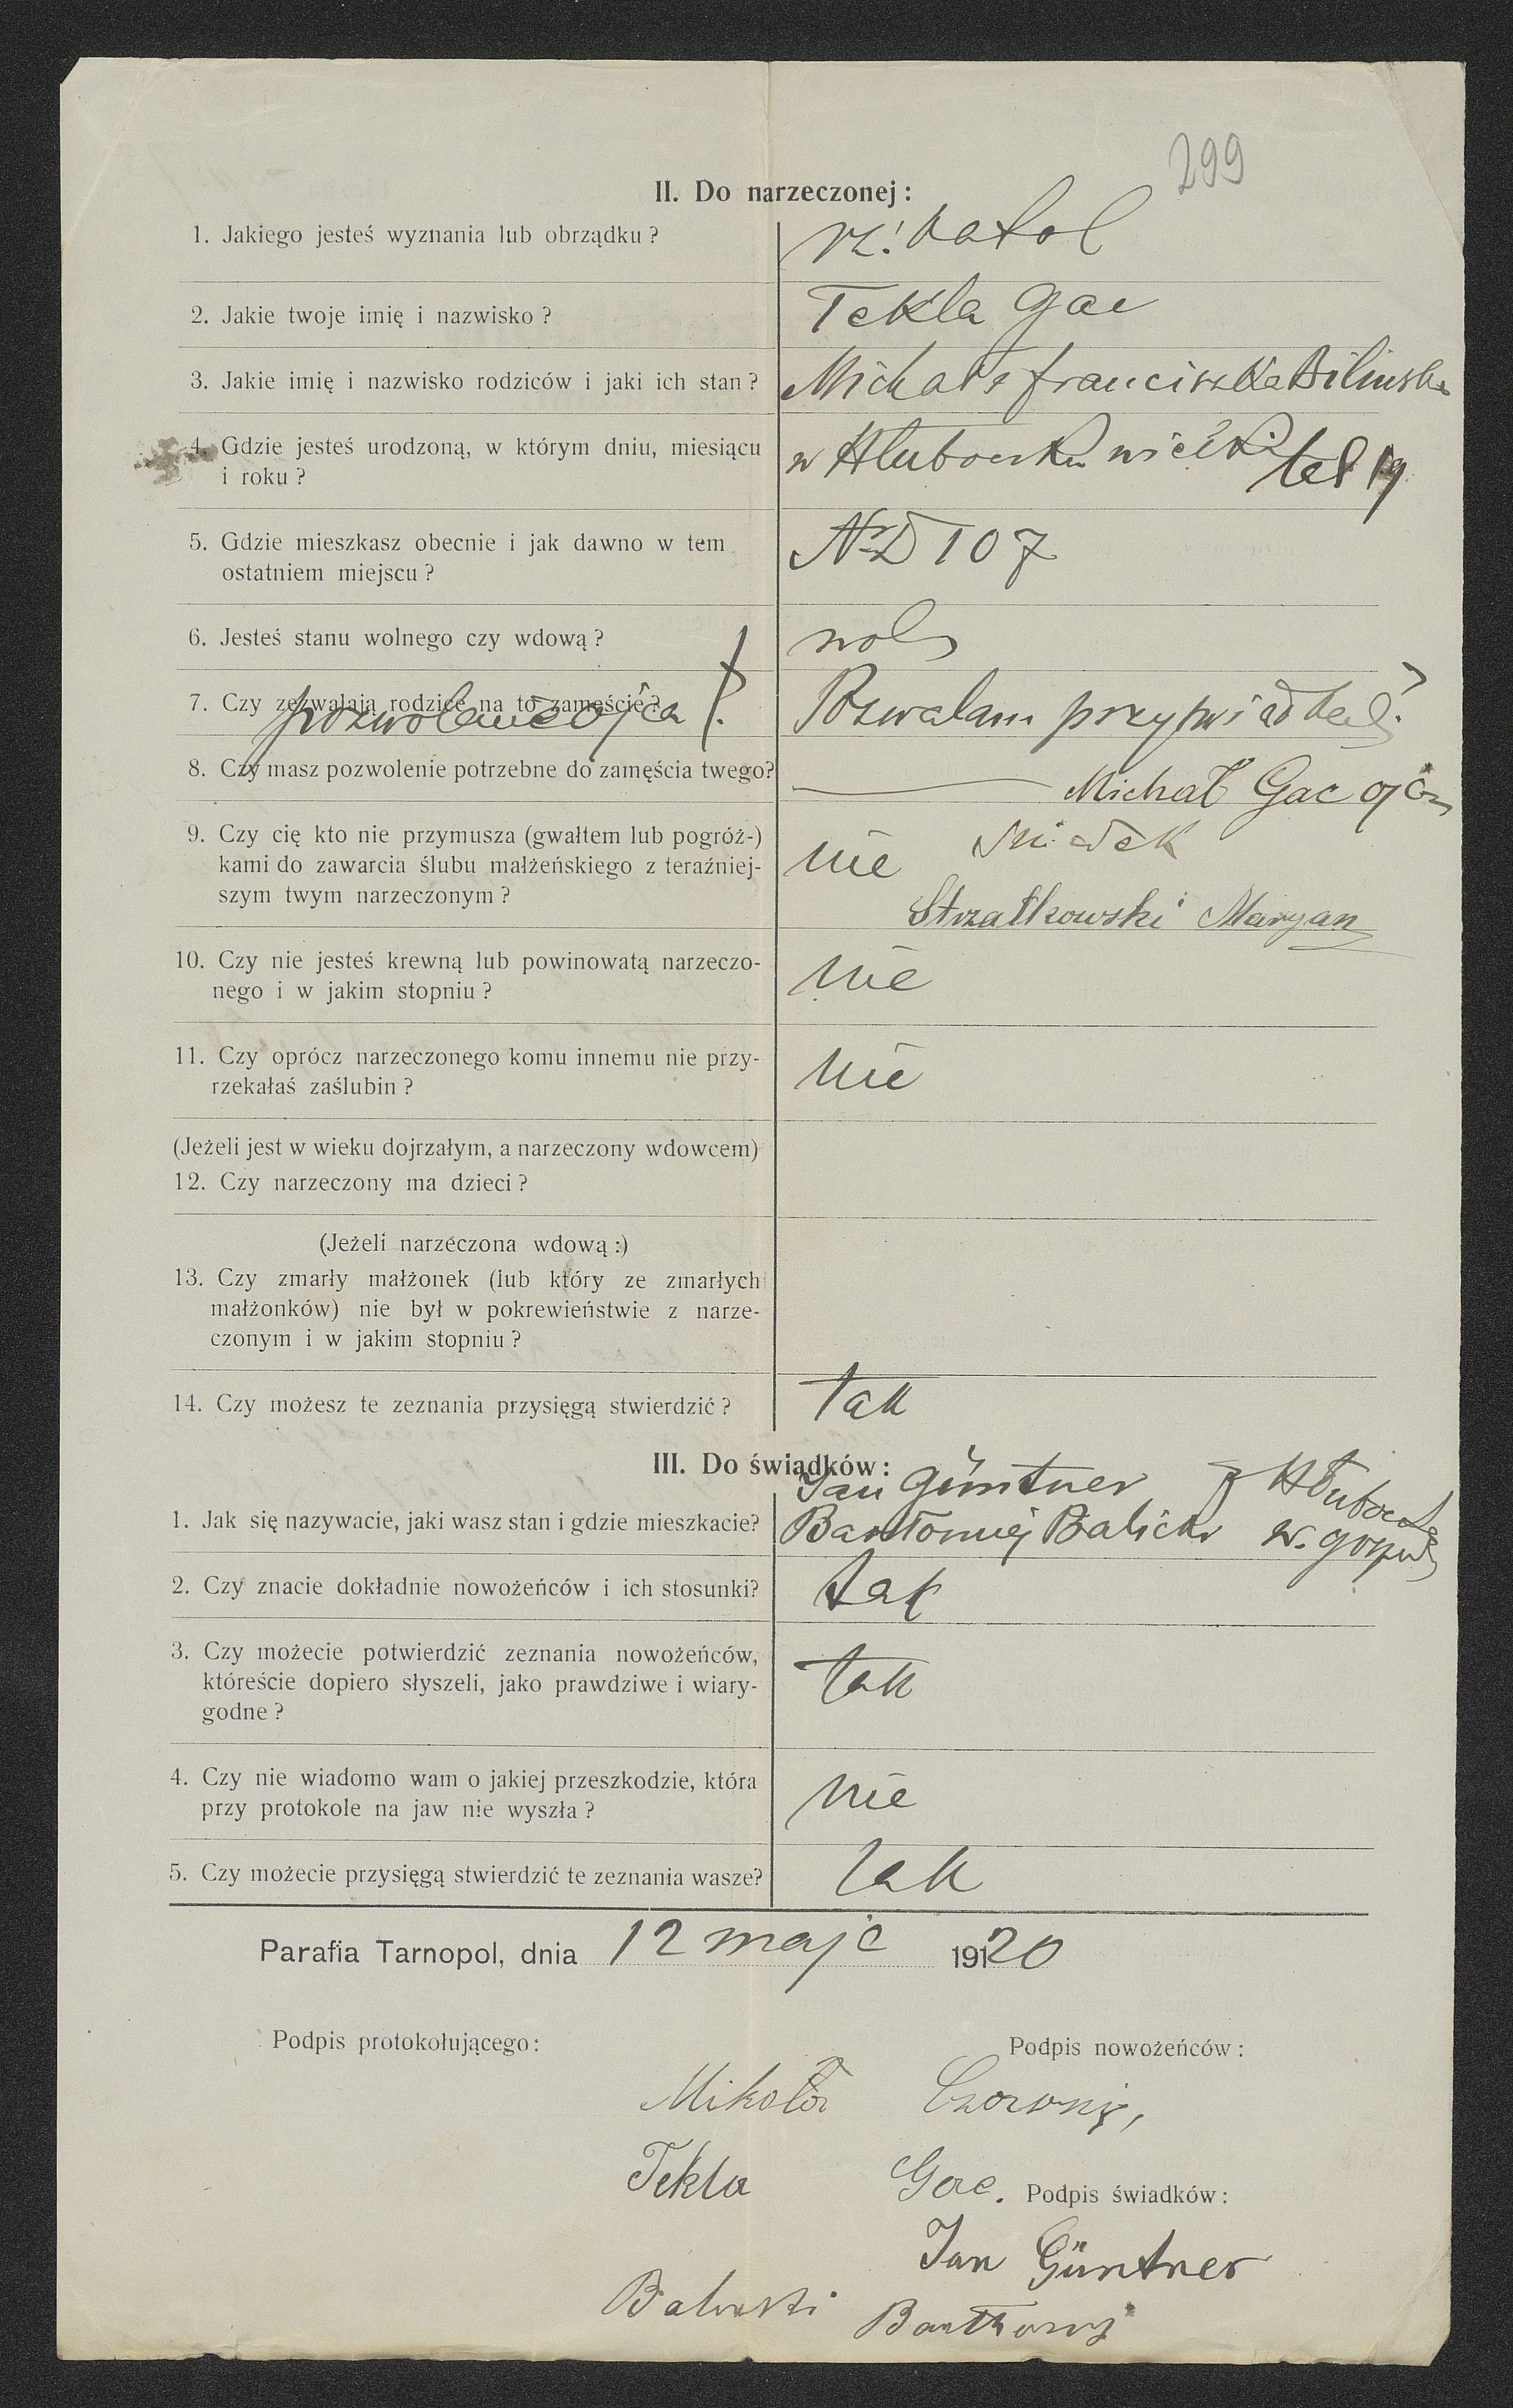 299
II. Do narzeczonej:
1. Jakiego jesteś wyznania lub obrządku?
rz. katol
2. Jakie twoje imię i nazwisko?
Tekla Gac
3. Jakie imię i nazwisko rodziców i jaki ich stan?
Michał i Franciszka Bilinska
4. Gdzie jesteś urodzoną, w którym dniu, miesiącu
i roku?
w Hłuboczku wielki lat 19
5. Gdzie mieszkasz obecnie i jak dawno w tem
ostatniem miejscu?
ND 107
6. Jesteś stanu wolnego czy wdową?
wol
7. Czy zezwalają rodzice na to zamęście?
pozwolenie ojca !.
Pozwalam przy
8. Czy masz pozwolenie potrzebne do zamęścia twego?
Michał Gac ojciec
9. Czy cię kto nie przymusza (gwałtem lub pogróż-)
kami do zawarcia ślubu małżeńskiego z teraźniej-
szym twym narzeczonym?
nie
Swiadek
Strzałkowski Maryan
10. Czy nie jesteś krewną lub powinowatą narzeczo-
nego i w jakim stopniu?
nie
11. Czy oprócz narzeczonego komu innemu nie przy-
rzekałaś zaślubin?
nie
(Jeżeli jest w wieku dojrzałym, a narzeczony wdowcem)
12. Czy narzeczony ma dzieci?
(Jeżeli narzeczona wdową:)
13. Czy zmarły małżonek (lub który ze zmarłych
małżonków) nie był w pokrewieństwie z narze-
czonym i w jakim stopniu?
14. Czy możesz te zeznania przysięgą stwierdzić?
tak
III. Do świadków:
Jan Güntner z Hłuboczka
1. Jak się nazywacie, jaki wasz stan i gdzie mieszkacie?
Bartłomiej Balicki w. gospod
2. Czy znacie dokładnie nowożeńców i ich stosunki?
tak
3. Czy możecie potwierdzić zeznania nowożeńców,
któreście dopiero słyszeli, jako prawdziwe i wiary-
godne?
tak
4. Czy nie wiadomo wam o jakiej przeszkodzie, która
przy protokole na jaw nie wyszła?
nie
5. Czy możecie przysięgą stwierdzić te zeznania wasze?
tak
Parafia Tarnopol, dnia 12 maja 1920
Podpis protokołującego:
Podpis nowożeńców:
Mikołaj
Tekla Gac.
Podpis świadków:
Jan Güntner